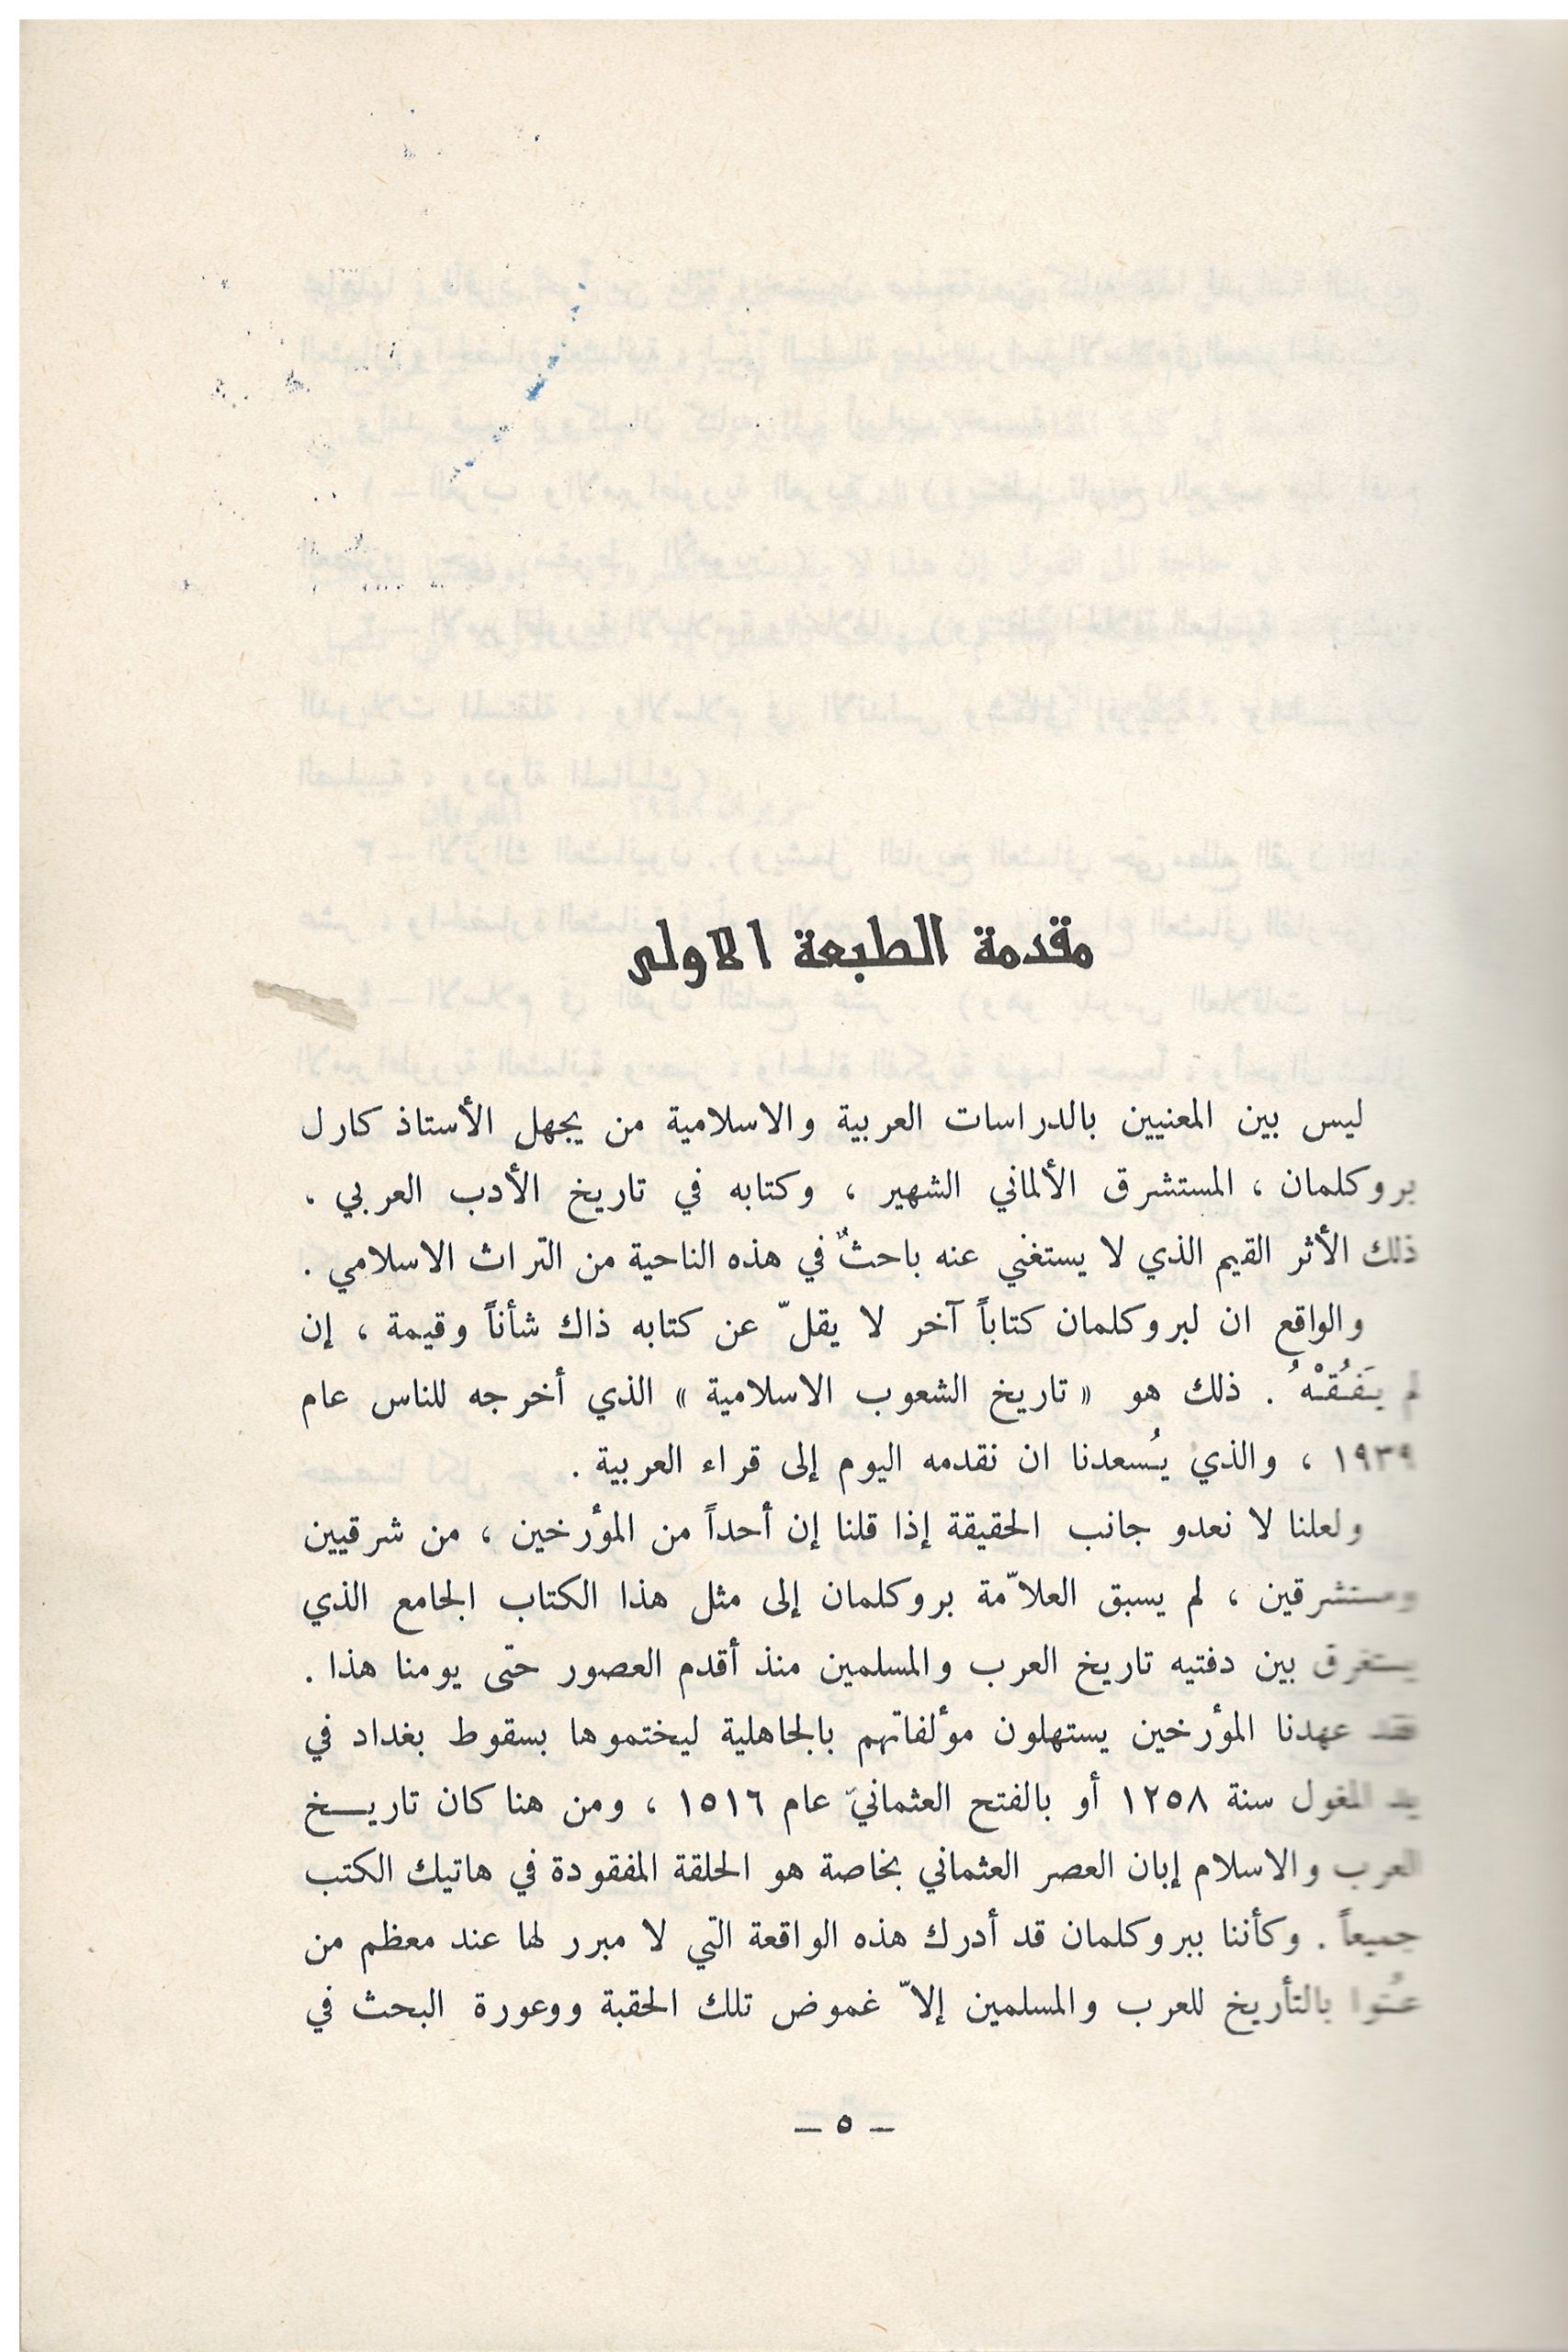 مقدمة الطبعة الاولى
ليس بين المعنيين بالدراسات العربية والاسلامية من يجهل الأستاذ كارل
بروكلمان ، المستشرق الألماني الشهير ، وكتابه في تاريخ الأدب العربي ،
ذلك الأثر القيم الذي لا يستغني عنه باحثٌ في هذه الناحية من التراث الاسلامي .
والواقع ان لبروكلمان كتاباً آخر لا يقلّ عن كتابه ذاك شأناً وقيمة ، إن
لم يَفُقْهُ . ذلك هو « تاريخ الشعوب الاسلامية » الذي أخرجه للناس عام
١٩٣٩ ، والذي يُسعدنا ان نقدمه اليوم إلى قراء العربية .
ولعلنا لا نعدو جانب الحقيقة إذا قلنا إن أحداً من المؤرخين ، من شرقيين
ومستشرقين ، لم يسبق العلاّمة بروكلمان إلى مثل هذا الكتاب الجامع الذي
يستغرق بين دفتيه تاريخ العرب والمسلمين منذ أقدم العصور حتى يومنا هذا .
فقد عهدنا المؤرخين يستهلون مؤلفاتهم بالجاهلية ليختموها بسقوط بغداد في
يد المغول سنة ١٢٥٨ أو بالفتح العثمانيّ عام ١٥١٦ ، ومن هنا كان تاريـخ
العرب والاسلام إبان العصر العثماني بخاصة هو الحلقة المفقودة في هاتيك الكتب
جميعاً . وكأننا ببروكلمان قد أدرك هذه الواقعة التي لا مبرر لها عند معظم من
عُنوا بالتأريخ للعرب والمسلمين إلاّ غموض تلك الحقبة ووعورة البحث في
– ٥ –